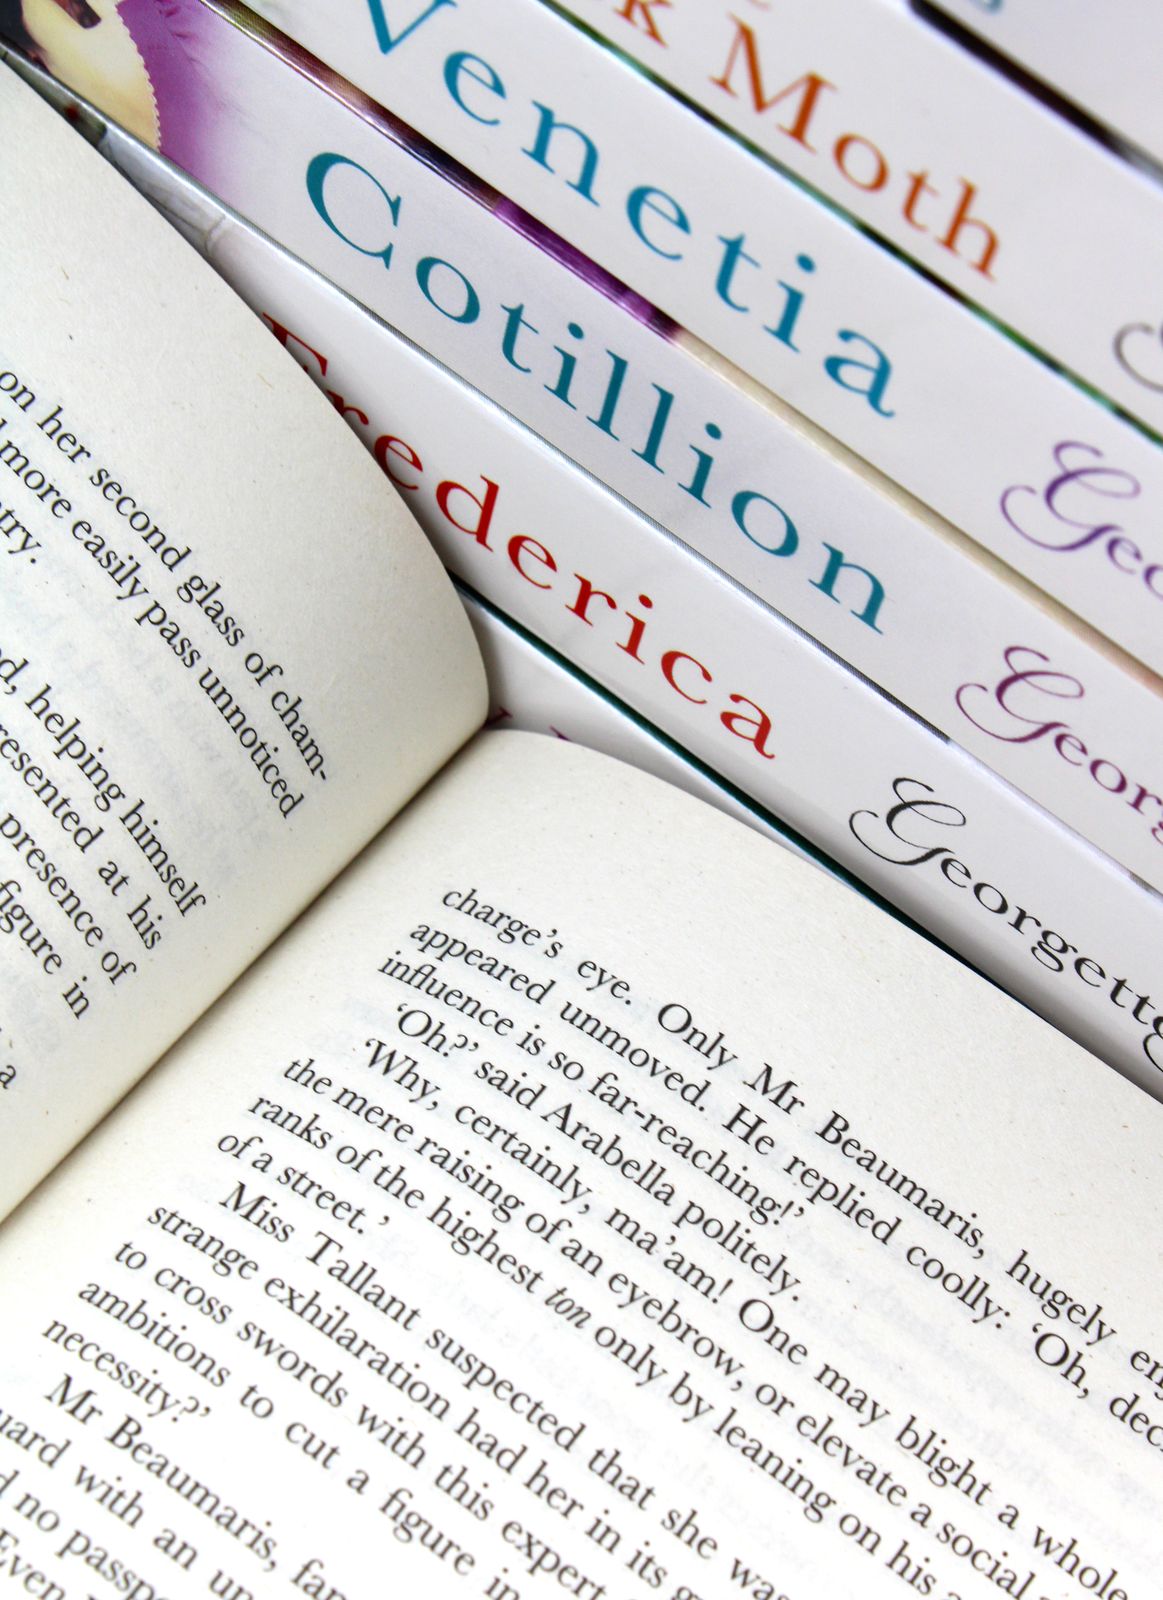 k Moth
Venetia
Geo
Cotillion
Georg
Frederica
Georgette
on her second glass of cham-
more easily pass unnoticed
try.
ed, helping himself
resented at his
presence of
figure in
a
charge's eye. Only Mr Beaumaris, hugely en
appeared unmoved. He replied coolly: 'Oh, dec
influence is so far-reaching!'
'Oh?' said Arabella politely.
'Why, certainly, ma'am! One may blight a whole
the mere raising of an eyebrow, or elevate a social
ranks of the highest ton only by leaning on his
of a street.'
Miss Tallant suspected that she was
strange exhilaration had her in its g
to cross swords with this expert
ambitions to cut a figure in
necessity?'
Mr Beaumaris, fa
uard with an un
no passp
Even